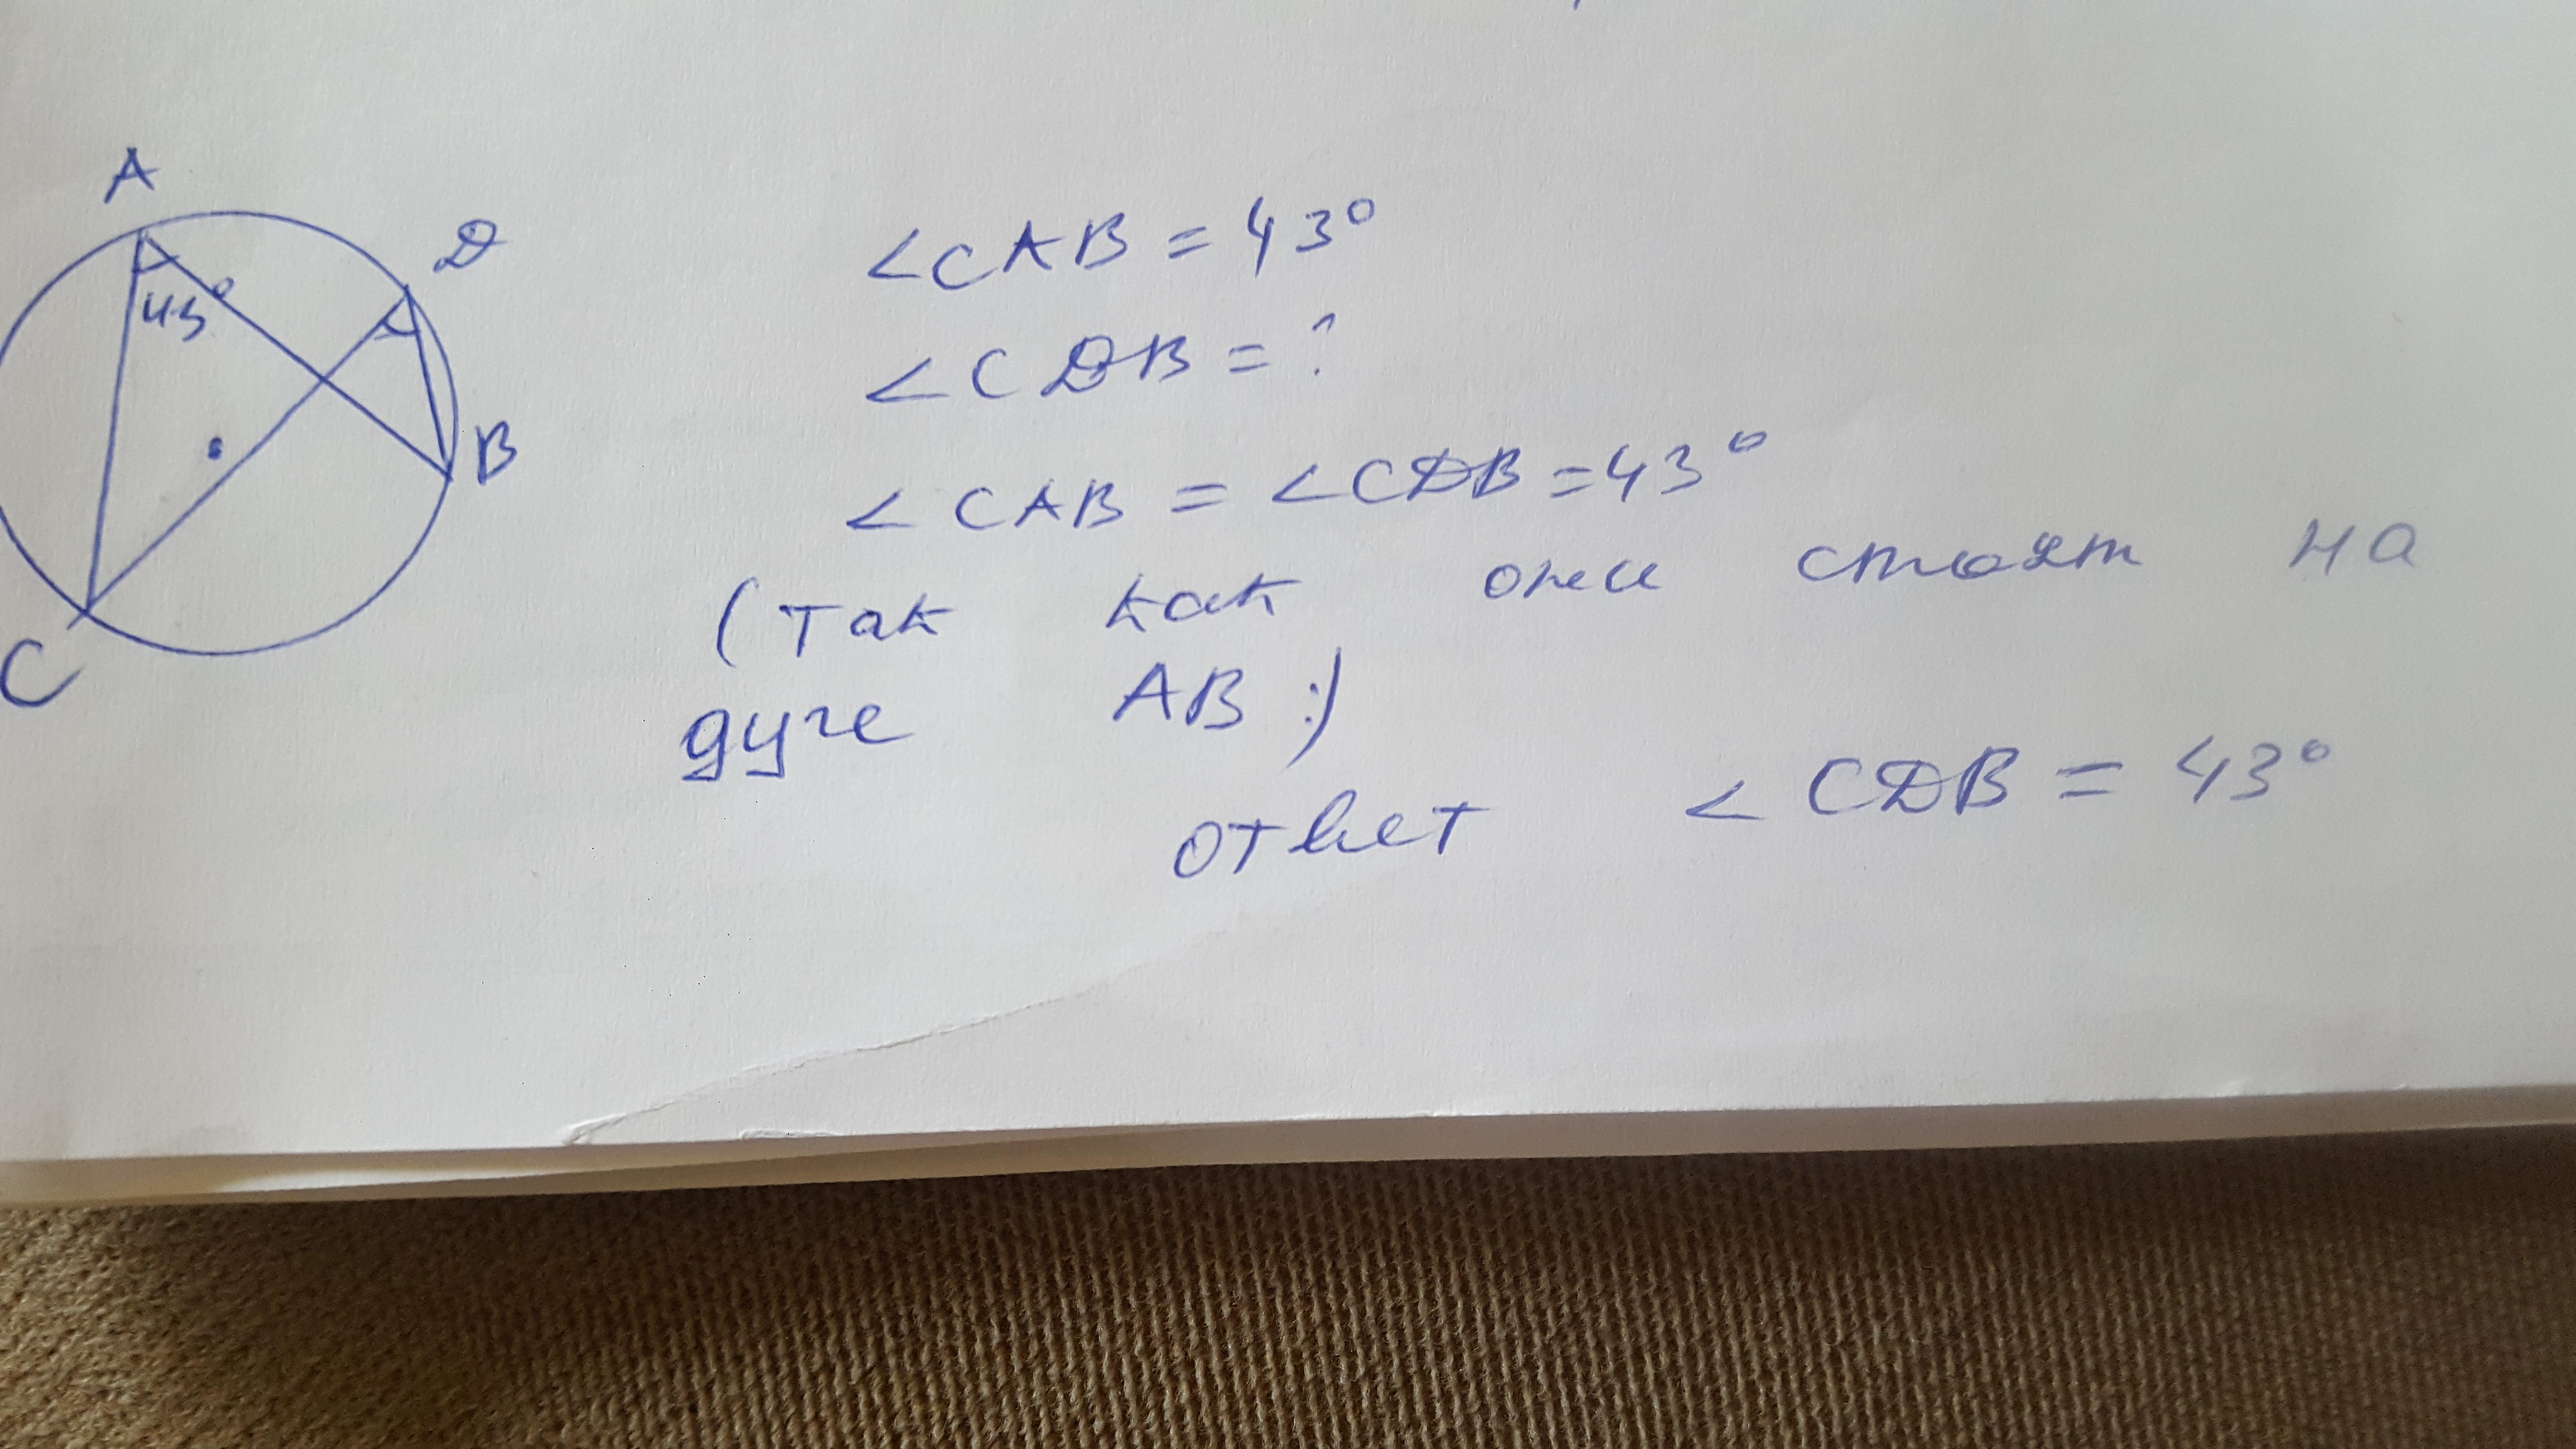 A
D
43°
B
C
<CAB = 43°
<CDB = ?
<CAB = <CDB = 43°
(так как они стоят на
дуге AB :)
ответ <CDB = 43°